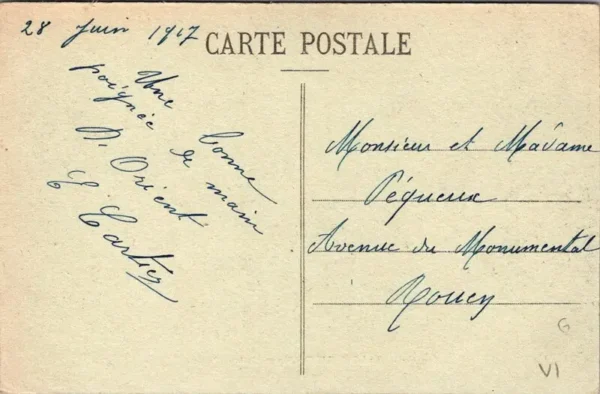 28 Juin 1917
CARTE POSTALE
Une bonne
poignée de main
D. Orient
C. Cartier
Monsieur et Madame
Péqueux
Avenue du Monumental
Rouen
G
VI